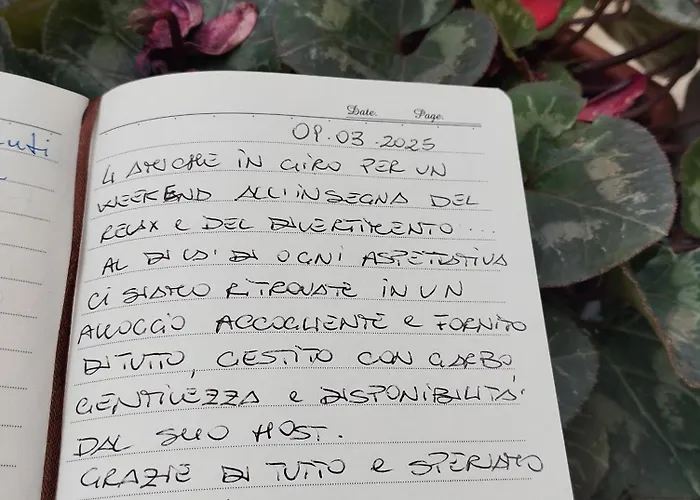 Date. Page.
09.03.2025
uti
4 AMICHE IN GIRO PER UN
WEEKEND ALL'INSEGNA DEL
RELAX e DEL DIVERTIMENTO ...
AL DI LA' DI OGNI ASPETTATIVA
CI SIAMO RITROVATE IN UN
ALLOGGIO ACCOGLIENTE e FORNITO
DI TUTTO, GESTITO CON GARBO,
GENTILEZZA e DISPONIBILITA'
DAL SUO HOST.
GRAZIE DI TUTTO e SPERIAMO